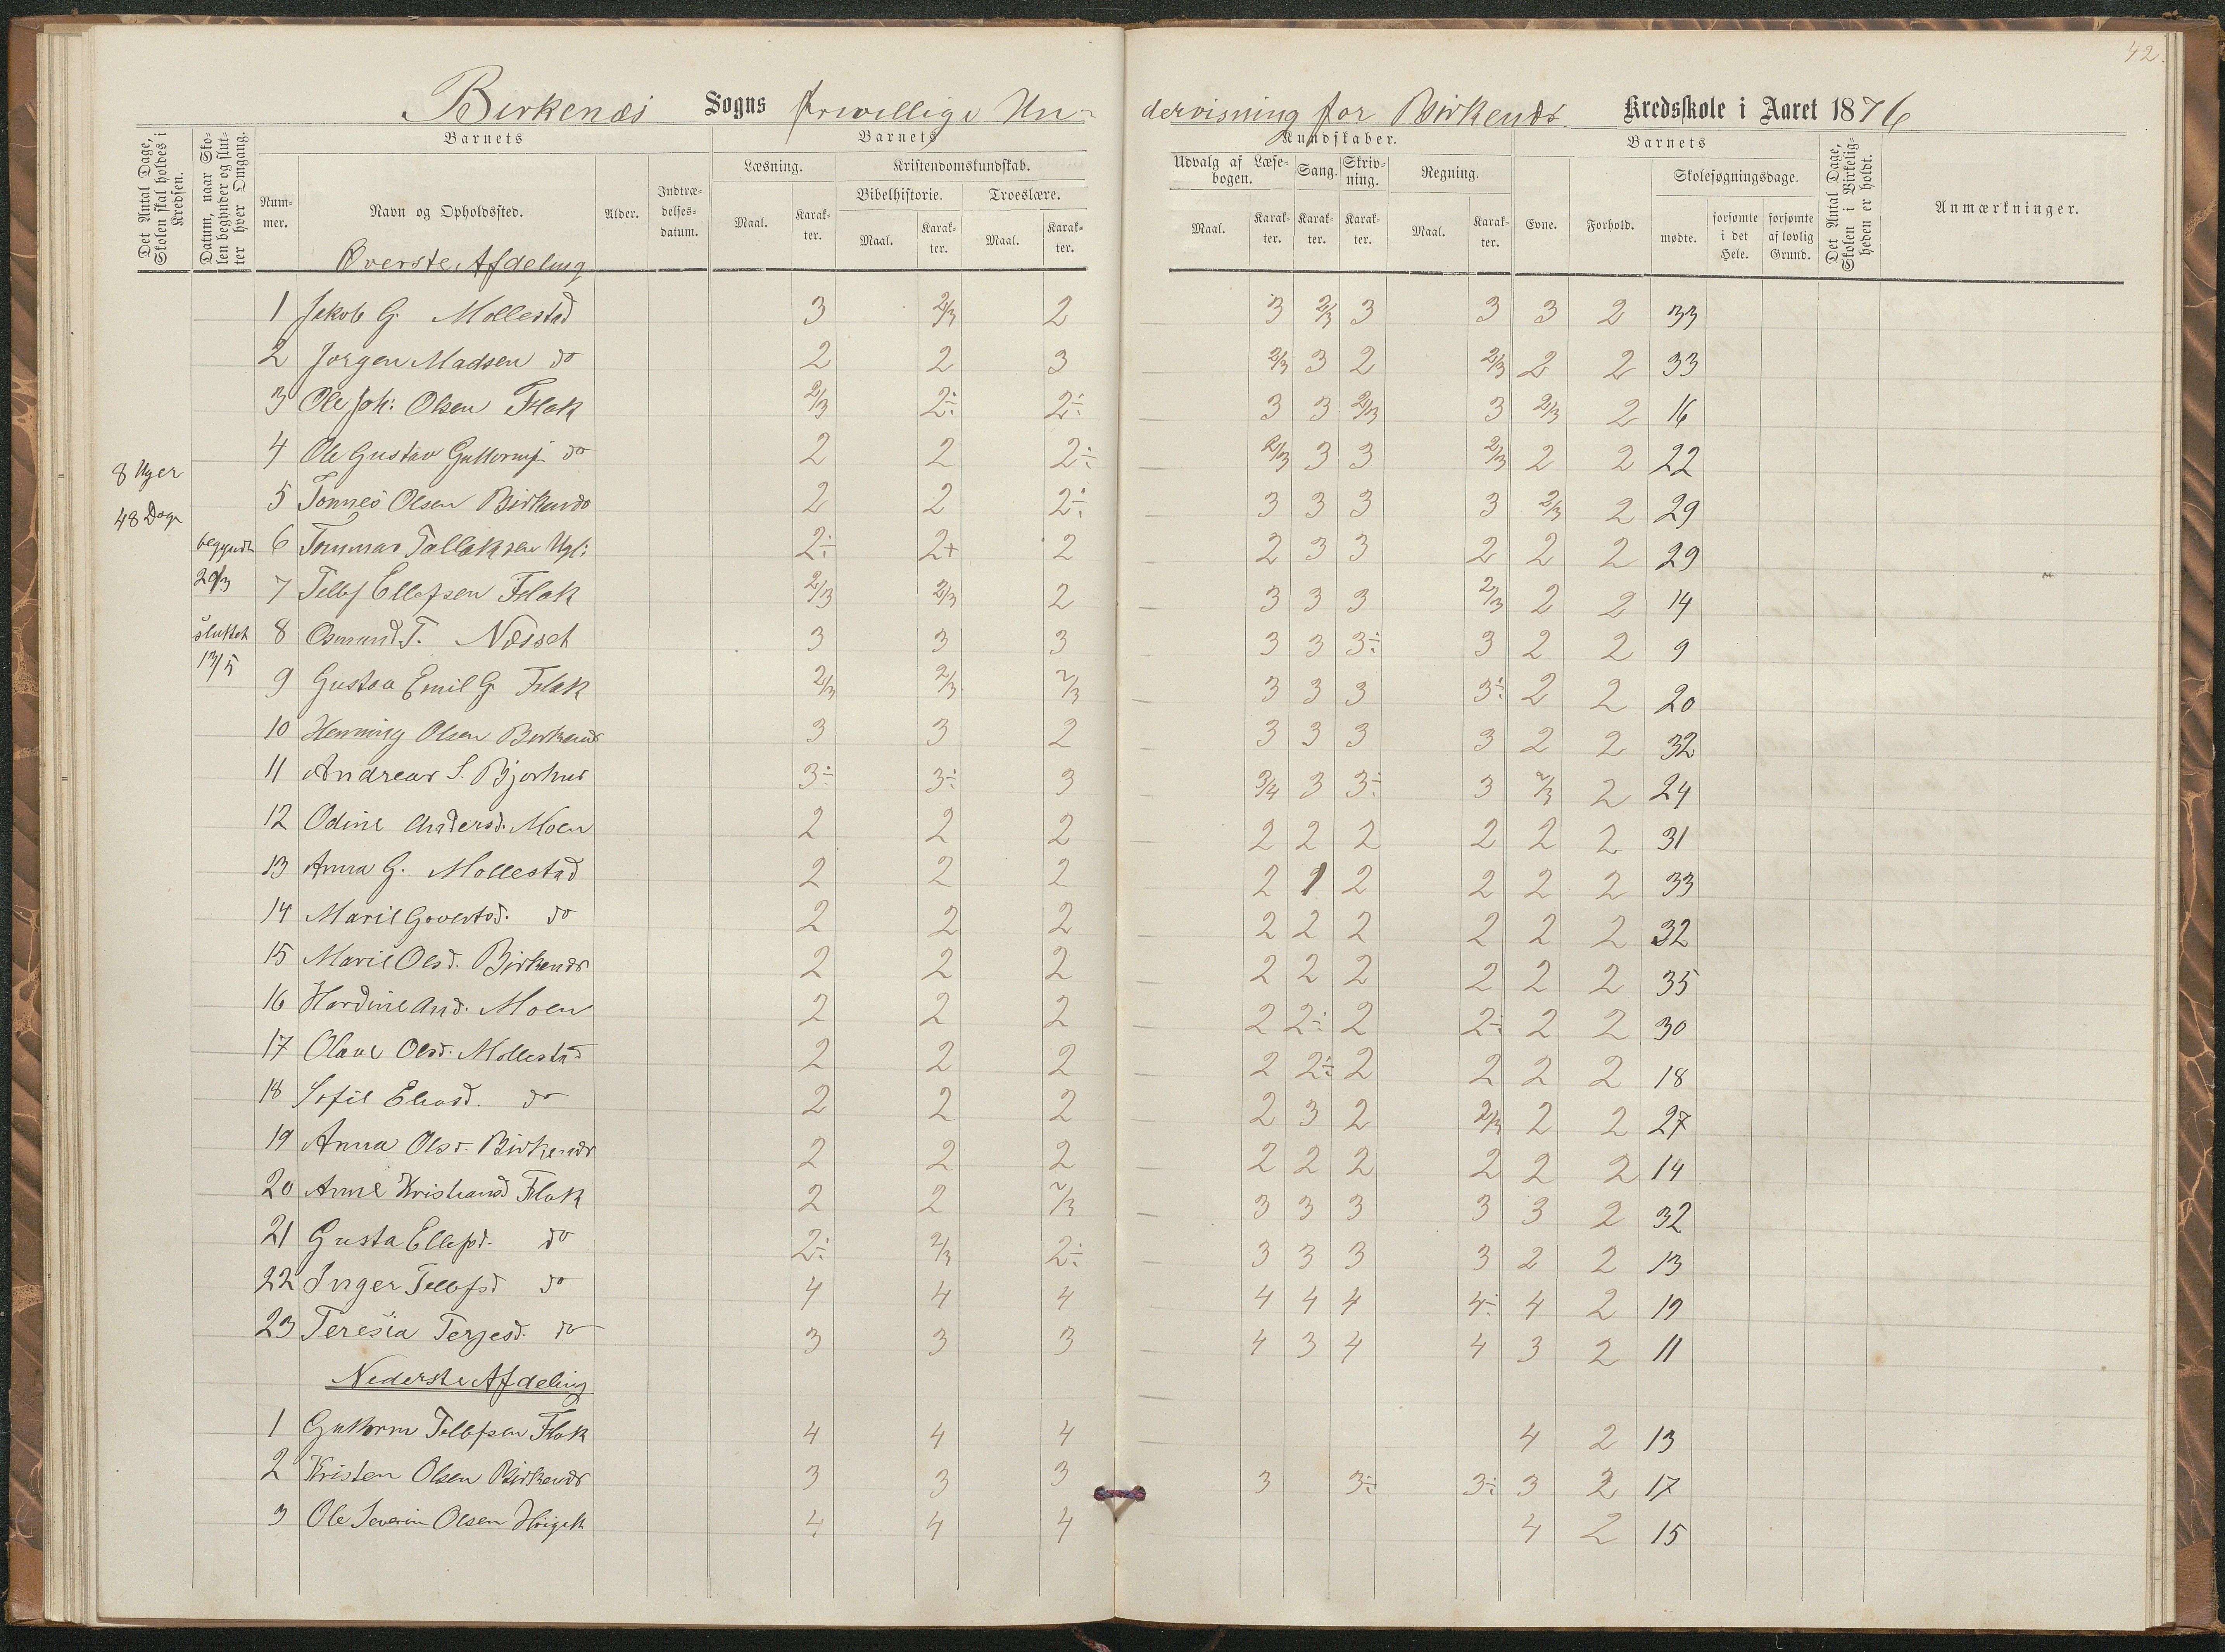 42.
Birkenæs Sogns frivillige Un-
dervisning for Birkenæs Kredsskole i Aaret 1876
Det Antal Dage, Skolen skal holdes i Kredsen.
Datum, naar Skolen begynder og slutter hver Omgang.
Barnets
Nummer.
Navn og Opholdssted.
Alder.
Indtrædelsesdatum.
Barnets
Læsning.
Maal. Karakter.
Kristendomskundskab.
Bibelhistorie.
Maal. Karakter.
Troeslære.
Maal. Karakter.
Kundskaber.
Udvalg af Læsebogen.
Maal. Karakter.
Sang.
Karakter.
Skrivning.
Karakter.
Regning.
Maal. Karakter.
Barnets
Evne. Forhold.
Skolesøgningsdage.
mødte. forsømte i det Hele. forsømte af lovlig Grund.
Det Antal Dage, Skolen i Virkeligheden er holdt.
Anmærkninger.
Øverste Afdeling
1 Jakob G. Mollestad 3 2/3 2 3 2/3 3 3 3 2 33
2 Jørgen Madsen do 2 2 3 2/3 3 2 2/3 2 2 33
3 Ole Joh: Olsen Flak 2/3 2÷ 2÷ 3 3 2/3 3 2/3 2 16
4 Ole Gustav Guttormss. do 2 2 2÷ 2/3 3 3 2/3 2 2 22
8 Uger
48 Dage
5 Tønnes Olsen Birkenæs 2 2 2÷ 3 3 3 3 2/3 2 29
begyndt 29/3
6 Tommas Tallaksen Ugl: 2÷ 2+ 2 2 3 3 2 2 2 29
7 Tellef Ellefsen Flak 2/3 2/3 2 3 3 3 2/3 2 2 14
sluttet 13/5
8 Osmund T. Næsset 3 3 3 3 3 3÷ 3 2 2 9
9 Gustav Emil G. Flak 2/3 2/3 2/3 3 3 3 3÷ 2 2 20
10 Henning Olsen Birkenæs 3 3 2 3 3 3 3 2 2 32
11 Andreas S. Bjorhus 3÷ 3÷ 3 3/4 3 3÷ 3 2/3 2 24
12 Odine Andersd. Moen 2 2 2 2 2 2 2 2 2 31
13 Anna G. Mollestad 2 2 2 2 1 2 2 2 2 33
14 Marie Govertsd. do 2 2 2 2 2 2 2 2 2 32
15 Marie Olsd. Birkenæs 2 2 2 2 2 2 2 2 2 35
16 Hardine And. Moen 2 2 2 2 2÷ 2 2÷ 2 2 30
17 Olave Olsd. Mollestad 2 2 2 2 2÷ 2 2 2 2 18
18 Sofie Eliasd. do 2 2 2 2 3 2 2/3 2 2 27
19 Anna Olsd. Birkenæs 2 2 2 2 2 2 2 2 2 14
20 Anne Kristiansd Flak 2 2 2/3 3 3 3 3 3 2 32
21 Gusta Ellefsd. do 2÷ 2/3 2÷ 3 3 3 3 2 2 13
22 Inger Tellefsd do 4 4 4 4 4 4 4÷ 4 2 19
23 Teresia Terjesd. do 3 3 3 4 3 4 4 3 2 11
Nederste Afdeling
1 Guttorm Tellefsen Flak 4 4 4 4 2 13
2 Kristen Olsen Birkenæs 3 3 3 3 3÷ 3÷ 3 2 17
3 Ole Severin Olsen 4 4 4 4 2 15